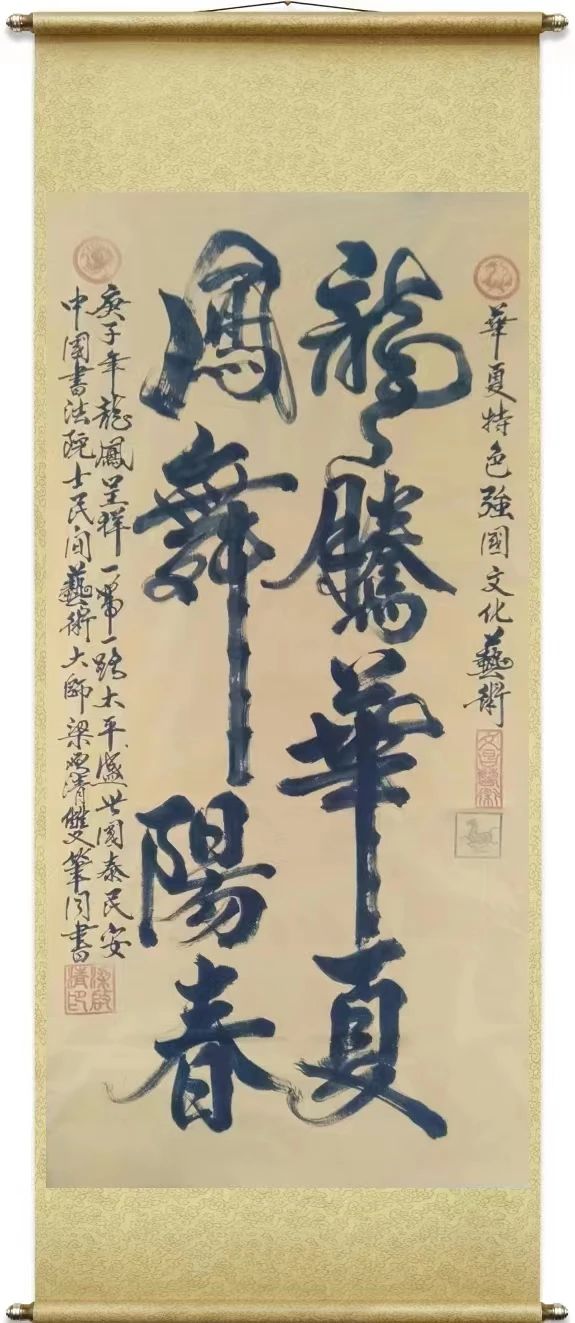 華夏特色強國文化藝術
龍騰華夏
鳳舞陽春
庚子年龍鳳呈祥一帶一路太平盛世國泰民安
中国書法院士民间藝術大師梁啓清雙筆同書
梁啟清印